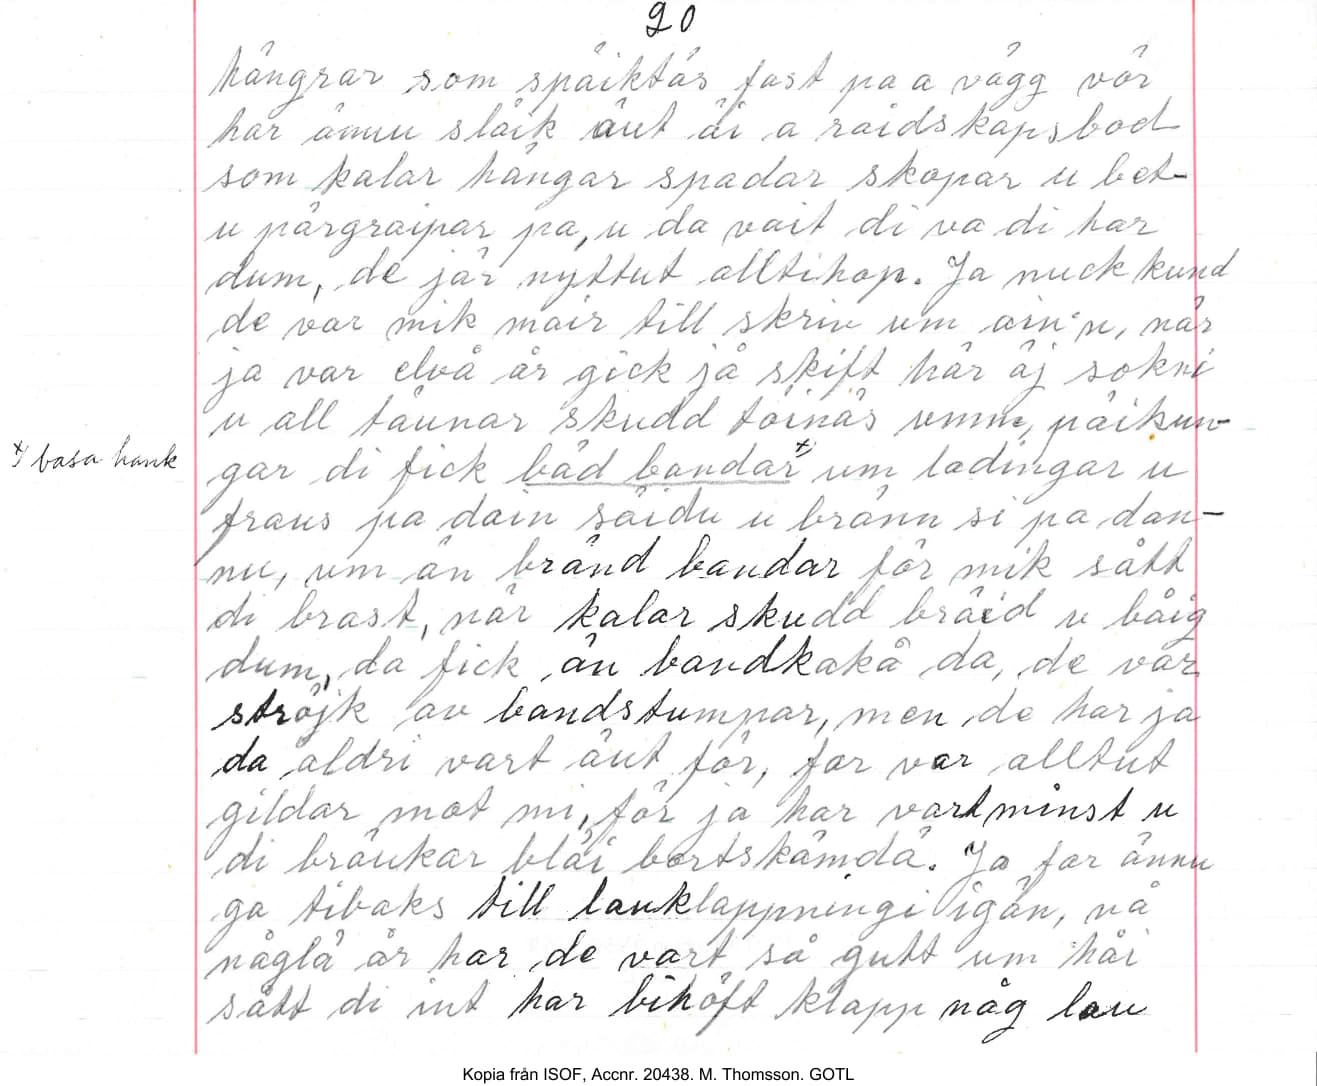 20
hängrar som späiktäs fast pa a vägg vör
har ännu släik äut äi a raidskapsbod
som kalar hängar spadar skopar u bet-
u pärgraipar pa, u da vait di va di har
dum, de jär nyttut alltihop. Ja nuck kund
de var mik mair till skriv um ain'n, när
ja var elvå år gick jä skift här äj sokni
u all täunar skudd töinäs umm, päikun-
x) basa hank
gar di fick båd bandar x) um ladingar u
fraus pa dain säidu u bränn si pa dan-
nu, um än bränd bandar för mik sått
di brast, när kalar skudd bräid u båig
dum, da fick än bandkakå da, de vär
ströjk av bandstumpar, men de har ja
da aldri vart äut för, far var alltut
gildar mot mi, för ja har vart minst u
di bräukar bläi bortskämdä. Ja far ännu
ga tibaks till lauklappningi igän, nå
någlå år har de vart så gutt um häi
sått di int har bihöft klapp någ lau
Kopia från ISOF, Accnr. 20438. M. Thomsson. GOTL